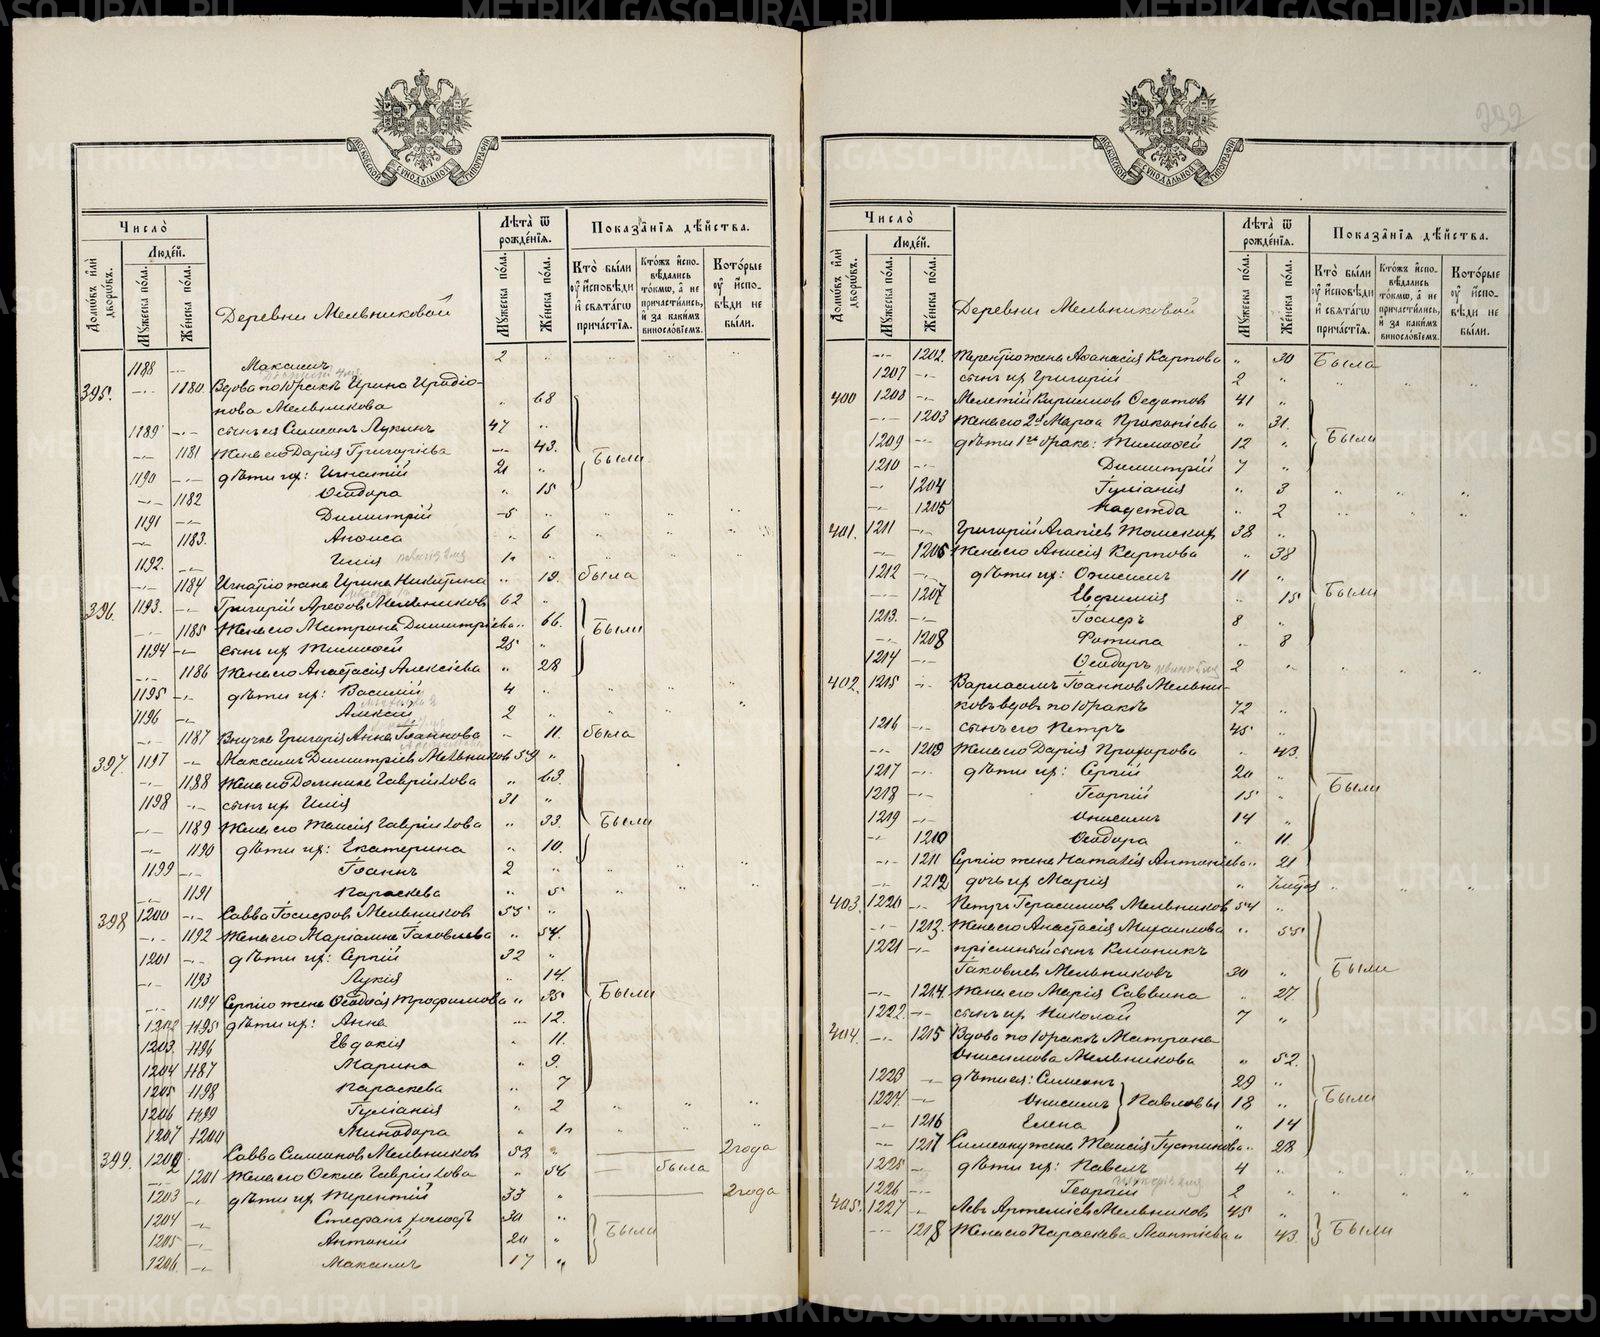 METRIKI.GASO-URAL.RU
292
МОСКОВСКОЙ СУНОДАЛЬНОЙ ТИПОГРАФІИ
Число̀
Людей.
Домѡвъ и҆лѝ дворѡвъ.
Мꙋжеска по́ла.
Же́нска по́ла.
Деревни Мельниковой
Лѣта̀ ѿ рожде́нїѧ.
Мꙋжеска по́ла.
Же́нска по́ла.
Показа̑нїѧ дѣ́йства.
Кто̀ бы́ли оу҆ и҆сповѣди и҆ свѧта́гѡ прича́стїѧ.
Кто́жъ и҆спо-вѣдались то́кмѡ, а҆ не причасти́лись, и҆ за каки́мъ винослѡ́вїемъ.
Кото́рые оу҆ и҆спо-вѣди не бы́ли.
1188 -„- Максимъ 2 „
395. -„- 1180 Вдова по 1 бракѣ Ирина Иродіо-
нова Мельникова „ 68
1189 -„- сынъ ея Симеонъ Лукинъ 47 „
-„- 1181 Жена его Дарія Григоріева -„- 43. Были
1190 -„- дѣти ихъ: Игнатій 21 „
-„- 1182 Ѳеодора „ 15
1191 -„- Димитрій 5 „
-„- 1183. Анѳиса „ 6
1192. -„- Илія 1 „
-„- 1184 Игнатія жена Ирина Никитина „ 19. была
396. 1193. -„- Григорій Арефов Мельников 62 „
-„- 1185 Жена его Матрона Димитріева „ 66. Были
1194 -„- сынъ ихъ Тимофей 25 „
-„- 1186 Жена его Анастасія Алексіева „ 28
1195 -„- дѣти ихъ: Василій 4 „
1196 -„- Алексій 2 „
-„- 1187 Внучка Григорія Анна Іоаннова „ 11. была
397. 1197 -„- Максимъ Димитріев Мельников 59 „
-„- 1188 Жена его Домника Гавріилова „ 63.
1198 -„- сынъ ихъ Илія 31 „
-„- 1189 Жена его Таисія Гавріилова „ 33. Были
-„- 1190 дѣти ихъ: Екатерина „ 10.
1199 -„- Іоаннъ 2 „
1191 Параскева „ 5
398 1200 -„- Савва Іосифов Мельников 55 „
-„- 1192 Жена его Маріамна Іаковлева „ 54.
1201 -„- дѣти ихъ: Сергій 32 „
-„- 1193 Лукія „ 14.
-„- 1194 Сергія жена Ѳеодосія Трофимова „ 35 Были
1202 1195 дѣти ихъ: Анна -„- 12.
1203. 1196 Евдокія „ 11.
1204 1187 Марина „ 9.
1205 1198 Параскева „ 7
1206 1199 Іуліанія „ 2
1207 1200 Минодора „ 1
399. 1202 Савва Симеонов Мельников 53 „ 2 года
-„- 1201 Жена его Ѳекла Гавріилова „ 56 была
1203 -„- дѣти ихъ Терентій 33 „ 2 года
1204 -„- Стефанъ холостъ 30 „
1205 -„- Антоній 20 „ Были
1206. -„- Максимъ 17 „
Число̀
Людей.
Домѡвъ и҆лѝ дворѡвъ.
Мꙋжеска по́ла.
Же́нска по́ла.
Деревни Мельниковой
Лѣта̀ ѿ рожде́нїѧ.
Мꙋжеска по́ла.
Же́нска по́ла.
Показа̑нїѧ дѣ́йства.
Кто̀ бы́ли оу҆ и҆сповѣди и҆ свѧта́гѡ прича́стїѧ.
Кто́жъ и҆спо-вѣдались то́кмѡ, а҆ не причасти́лись, и҆ за каки́мъ винослѡ́вїемъ.
Кото́рые оу҆ и҆спо-вѣди не бы́ли.
-„- 1202. Терентія жена Аѳанасія Карпова „ 30 Была
1207 -„- сынъ ихъ Григорій 2 „
400 1208 -„- Мелетій Кириллов Федотов 41 „
-„- 1203 Жена его 2я Марѳа Прокопіева „ 31.
1209 -„- дѣти 1го брака: Тимофей 12 „ Были
1210 -„- Димитрій 7 „
-„- 1204 Іуліанія „ 3
-„- 1205 Надежда „ 2
401. 1211 -„- Григорій Агапіев Томских 38 „
-„- 1206 Жена его Анисія Карпова „ 38
1212 -„- дѣти ихъ: Онисимъ 11 „
-„- 1207 Евфимія „ 15 Были
1213. -„- Іосифъ 8 „
-„- 1208 Фотина „ 8
1214 -„- Ѳеодоръ 2 „
402. 1215 -„- Варлаамъ Іоаннов Мельни-
ковъ вдовъ по 1 бракѣ 72 „
1216 -„- сынъ его Петръ 45 „
-„- 1209 Жена его Дарія Прохорова „ 43.
1217 -„- дѣти ихъ: Сергій 20 „
1218 -„- Георгій 15 „ Были
1219 -„- Онисимъ 14 „
-„- 1210 Ѳеодора „ 11
-„- 1211 Сергія жена Наталія Антоніева „ 21
-„- 1212 дочь ихъ Марія „
403. 1220 -„- Петръ Герасимов Мельников 54 „
-„- 1213. Жена его Анастасія Михаилова „ 55
1221 -„- пріемный сынъ Клионикъ
Іаковлев Мельниковъ 30 „ Были
-„- 1214. Жена его Марія Саввина „ 27
1222 -„- сынъ ихъ Николай 7 „
404. -„- 1215 Вдова по 1 бракѣ Матрона
Онисимова Мельникова „ 52.
1223 -„- дѣти ея: Симеонъ 29 „
1224. -„- Онисимъ } Павловы 18 „ Были
-„- 1216 Елена „ 14
-„- 1217 Симеону жена Таисія Іустинова „ 28
1225 -„- дѣти ихъ: Павелъ 4 „
1226 -„- Георгій 2 „
405. 1227 -„- Левъ Артеміев Мельников 45 „
-„- 1218 Жена его Параскева Леонтіева „ 43. Были